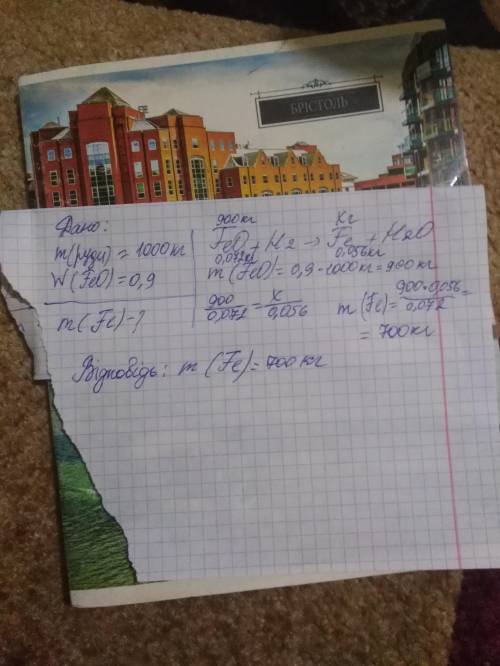 БРІСТОЛЬ
Дано:
m(руди) = 1000кг
W(FeO)=0,9
m(Fe)-?
900кг хкг
FeO + H2 → Fe + H2O
0,072кг 0,056кг
m(FeO)=0,9·1000кг=900кг
900/0,072 = х/0,056
m(Fe)=900·0,056/0,072=
= 700кг
Відповідь: m(Fe)=700кг